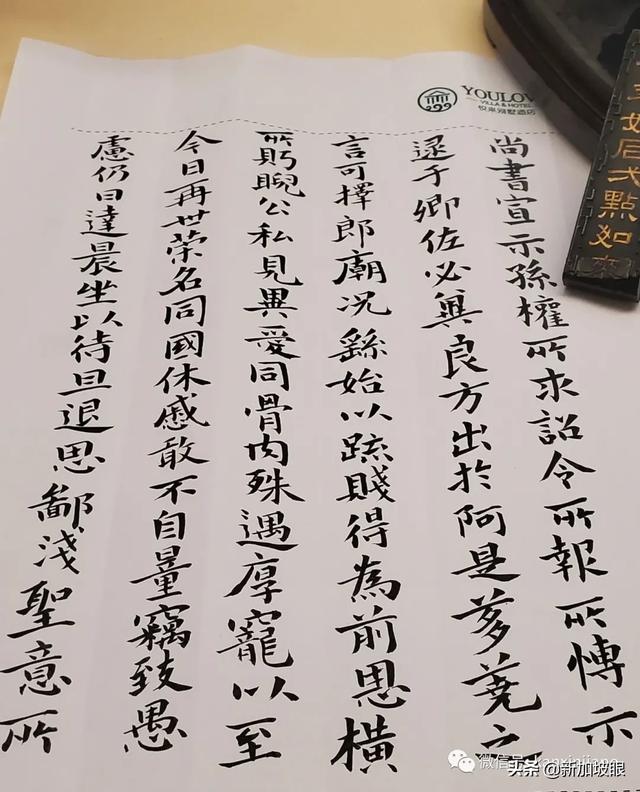 YOULOV
VILLA & HOTEL
悦来别墅酒店
尚書宣示孫權所求詔令所報所愽示
逮于卿佐必冀良方出於阿是芻蕘之
言可擇郎廟况繇始以疏賤得為前恩橫
所眄睨公私見異愛同骨肉殊遇厚寵以至
今日再世榮名同國休慼敢不自量竊致愚
慮仍日達晨坐以待旦退思鄙淺聖意所
點如
微信号: kanxinjiapo
头条 @新加坡眼